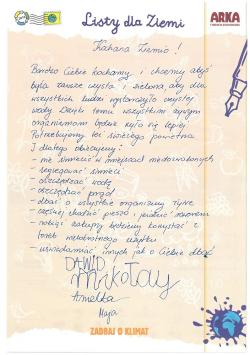 Listy dla Ziemi
ARKA
Kochana Ziemio!
Bardzo Ciebie kochamy i chcemy abyś
była zawsze czysta i zielona, aby dla
wszystkich ludzi wystarczyło czystej
wody. Dzięki temu wszystkim żywym
organizmom będzie żyło się lepiej.
Potrzebujemy też świeżego powietrza.
I dlatego obiecujemy:
- nie śmiecić w miejscach niedozwolonych
- segregować śmieci
- oszczędzać wodę
- oszczędzać prąd
- dbać o wszystkie organizmy żywe
- częściej chodzić pieszo i jeździć rowerem
- robiąc zakupy będziemy korzystać z
toreb wielokrotnego użytku
- uświadamiać innych jak o Ciebie dbać
DAWID
Mikołaj
Amelka
Maja
ZADBAJ O KLIMAT